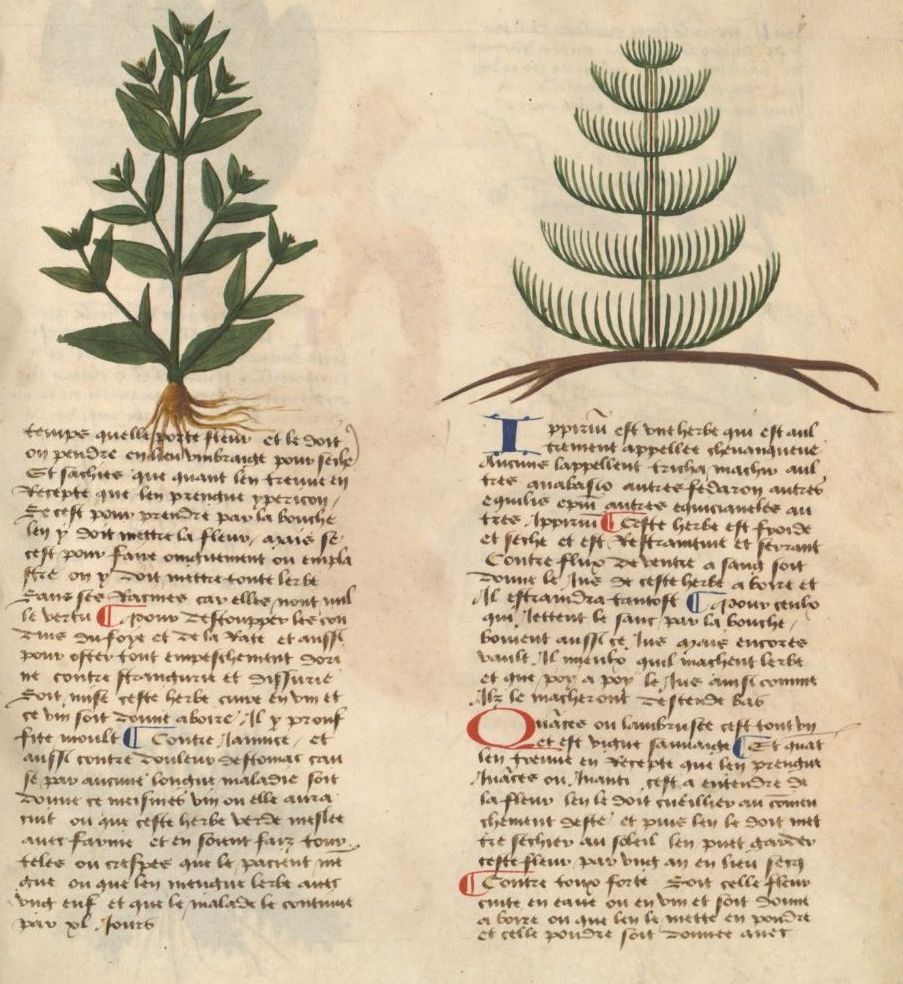 temps quelle porte fleur et le doit
on pendre en lieu umbraige pour seche
Et sachies que quant len treuve en
Recepte que len prengne ypericon,
Se cest pour prendre par la bouche
len y doit mettre la fleur, mais se
cest pour faire oingnement ou empla
stre on y doit mettre toute lerbe
Sans ses Racines car elles nont nul
le vertu Pour destoupper les con
duis du foye et de la Rate et aussi
pour oster tout empeschement dori
ne contre strangurie et dissurie
Soit mise ceste herbe cuire en vin et
ce vin soit donne a boire Il y prouf
fite moult Contre Jaunice, et
aussi contre douleur destomac cau
se par aucune longue maladie soit
donne ce meismes vin ou elle aura
cuit ou que ceste herbe verde meslee
avec farine et en soient faiz tour
teles ou crespes que le pacient me
gue ou que len mengue lerbe avec
ung euf et que le malade le continue
par xl Jours
Ippirum est une herbe qui est aul
trement appellee chevanqueue
Aucuns lappellent tricha machin aul
tres anabasio autres fedaron autres
equilis epm autres equicianeles au
tres Ippirum Ceste herbe est froide
et seche et est Restraintive et serrant
Contre flux de ventre a sang soit
donne le Jus de ceste herbe a boire et
Il estraindra tantost Pour ceulx
qui Jettent le sanc par la bouche,
boivent aussi ce Jus mais encores
vault Il mieulx quil machent lerbe
et que poy a poy le Jus ainsi comme
Ilz le macheront descende bas
Quaces ou lambrusce cest tout un
et est vigne sauvaige Et quat
len treuve en Recepte que len prengne
Juaces ou Juanti cest a entendre de
la fleur len le doit cueillier au comen
chement deste et puis len le doit met
tre sechier au soleil len puet garder
ceste fleur par ung an en lieu secq
Contre toux forte Soit celle fleur
cuite en eaue ou en vin et soit donne
a boire ou que len le mette en pouldre
et celle pouldre soit donnee avec